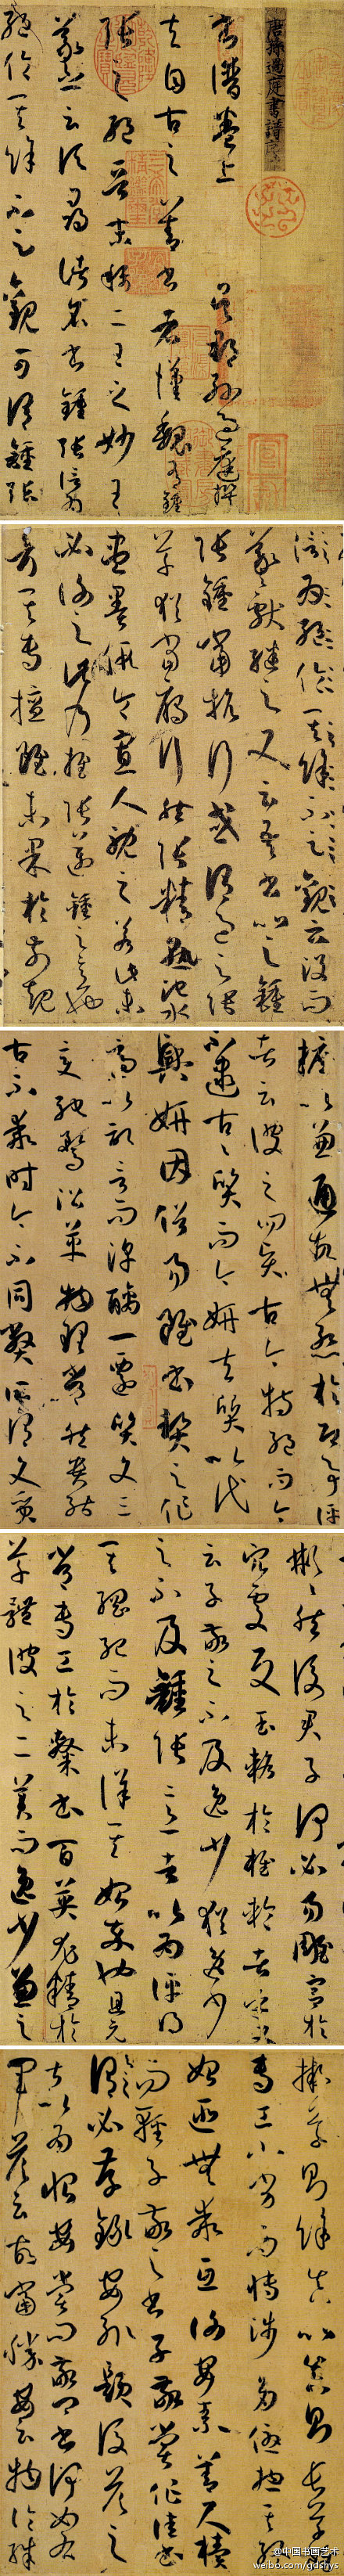 唐孫過庭書譜序
書譜卷上 吳郡孫過庭撰
夫自古之善書者漢魏有鍾
張之絕晉末稱二王之妙王
羲之云頃尋諸名書鍾張信為
絕倫其餘不足觀可謂鍾張
信為絕倫其餘不足觀云沒而
羲獻繼之又云吾書比之鍾
張鍾當抗行或謂過之張
草猶當雁行然張精熟池水
盡墨假令寡人耽之若此未
必謝之此乃推張邁鍾之意也
考其專擅雖未果於前規
摭以兼通故無慚於即事評
者云彼之四賢古今特絕而今
不逮古古質而今妍夫質以代
興妍因俗易雖書契之作
適以記言而淳醨一遷質文三
變馳鶩沿革物理常然貴能
古不乖時今不同弊所謂文質
彬彬然後君子何必易雕宮於
穴處反玉輅於椎輪者乎又
云子敬之不及逸少猶逸少
之不及鍾張意者以為評得
其綱紀而未詳其始卒也且元
常專工於隸書百英尤精於
草體彼之二美而逸少兼之
擬草則餘真比真則長草雖
專工小劣而博涉多優總其終
始匪無乖互謝安素善尺牘
而輕子敬之書子敬嘗作佳書
與之謂必存錄安輒題後答之
甚以為恨安嘗問敬卿書何如右
軍答云故當勝安云物論殊
@中國书画艺术
weibo.com/gdshys